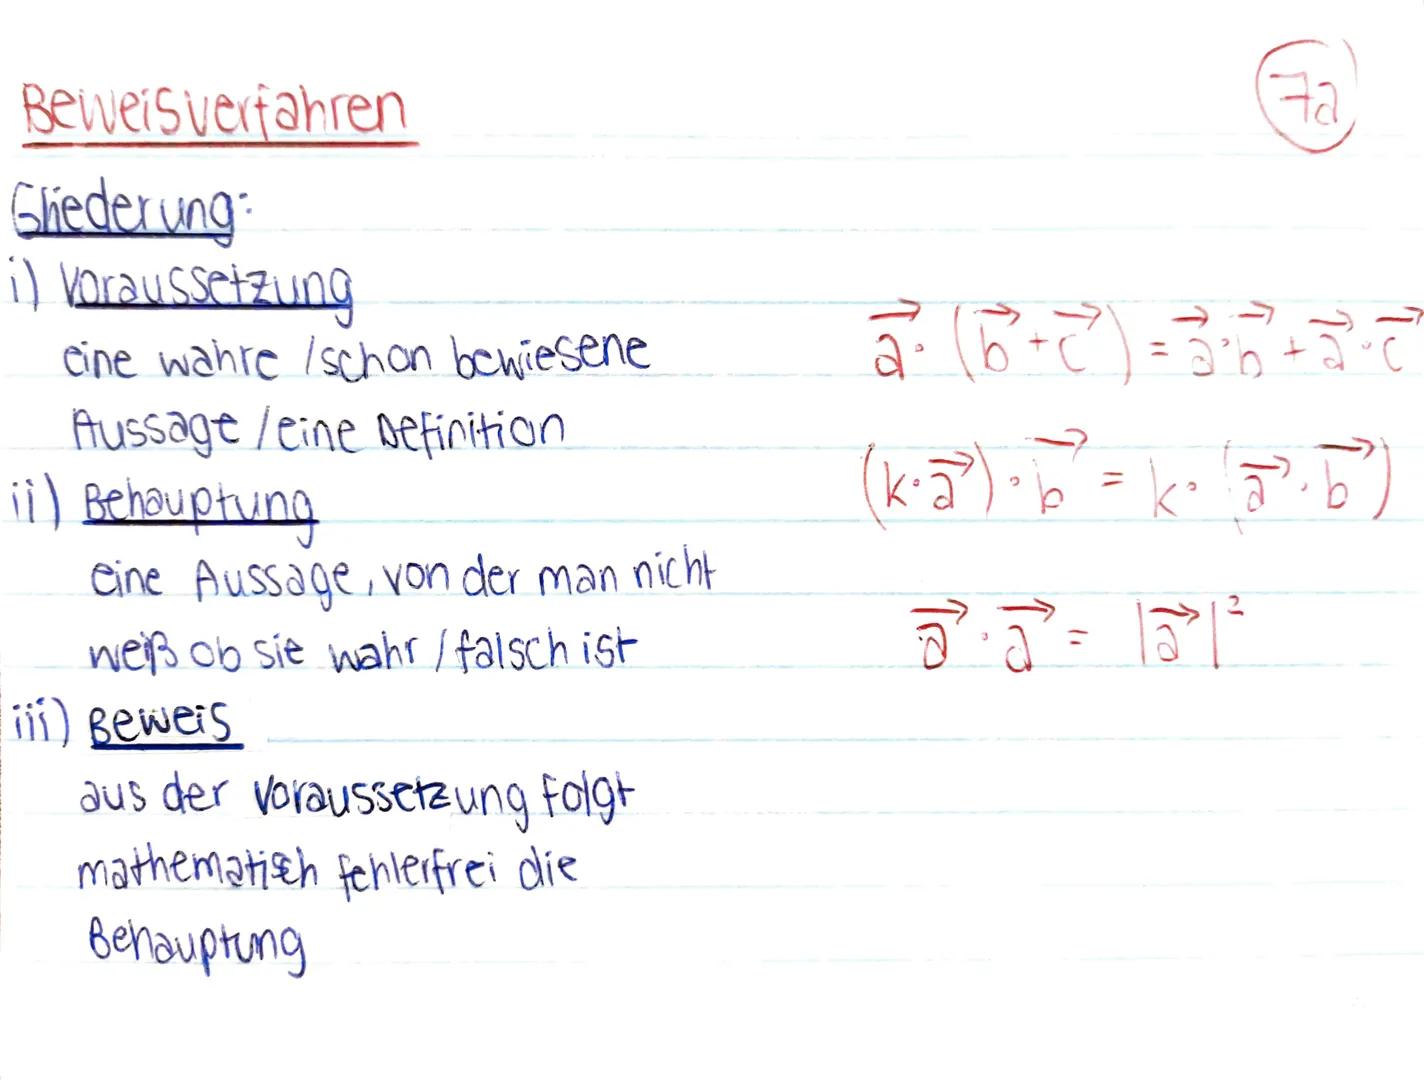 Beweisverfahren
7a
Gliederung:
i) Voraussetzung
eine wahre / schon bewiesene
Aussage / eine Definition
ii) Behauptung
eine Aussage, von der man nicht
weiß ob sie wahr / falsch ist
iii) Beweis
aus der Voraussetzung folgt
mathematisch fehlerfrei die
Behauptung
$\vec{a} \cdot (\vec{b} + \vec{c}) = \vec{a} \cdot \vec{b} + \vec{a} \cdot \vec{c}$
$(k \cdot \vec{a}) \cdot \vec{b} = k \cdot (\vec{a} \cdot \vec{b})$
$\vec{a} \cdot \vec{a} = |\vec{a}|^2$